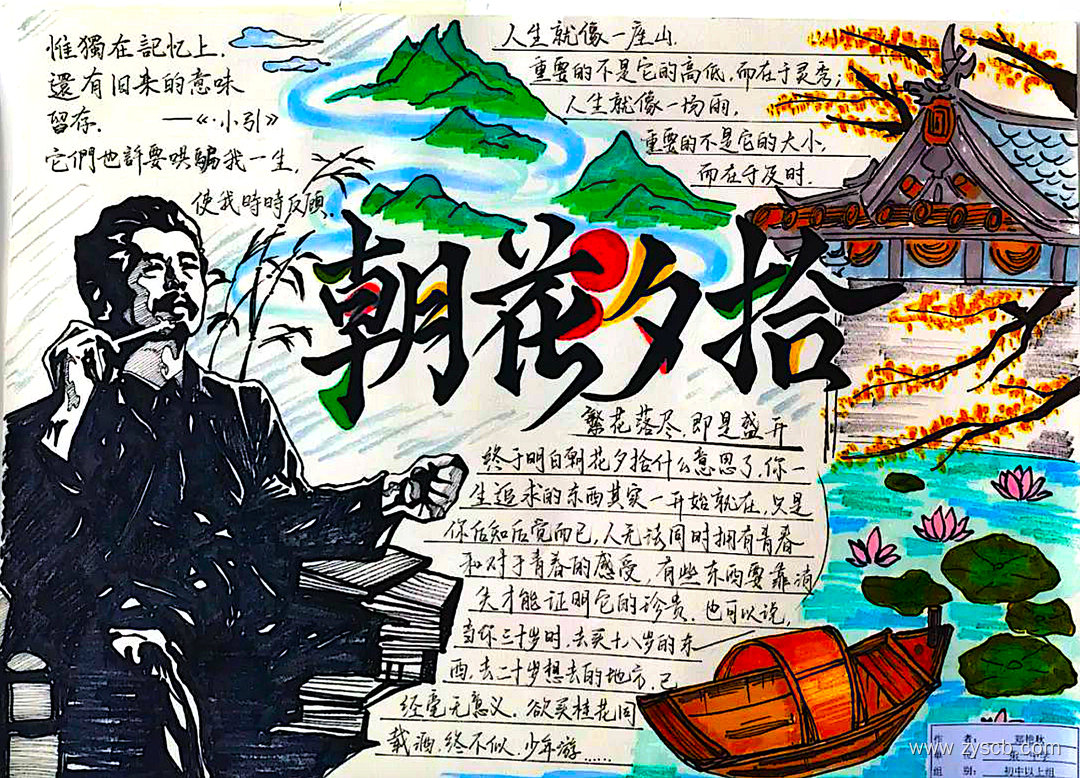 惟獨在記忆上,
還有旧来的意味
留存. —《·小引》
它們也許要哄騙我一生,
使我時時反顧.
人生就像一座山.
重要的不是它的高低,而在于灵秀;
人生就像一场雨,
重要的不是它的大小,
而在于及时.
朝花夕拾
繁花落尽,即是盛开
终于明白朝花夕拾什么意思了,你一
生追求的东西其实一开始就在,只是
你后知后觉而已,人无法同时拥有青春
和对于青春的感受,有些东西要靠消
失才能证明它的珍贵.也可以说,
当你三十岁时,去买十八岁的东
西,去二十岁想去的地方,已
经毫无意义.欲买桂花同
载酒,终不似,少年游......
作 者: 郑艳秋
单
组 别: 初中以上组
www.zyscb.com